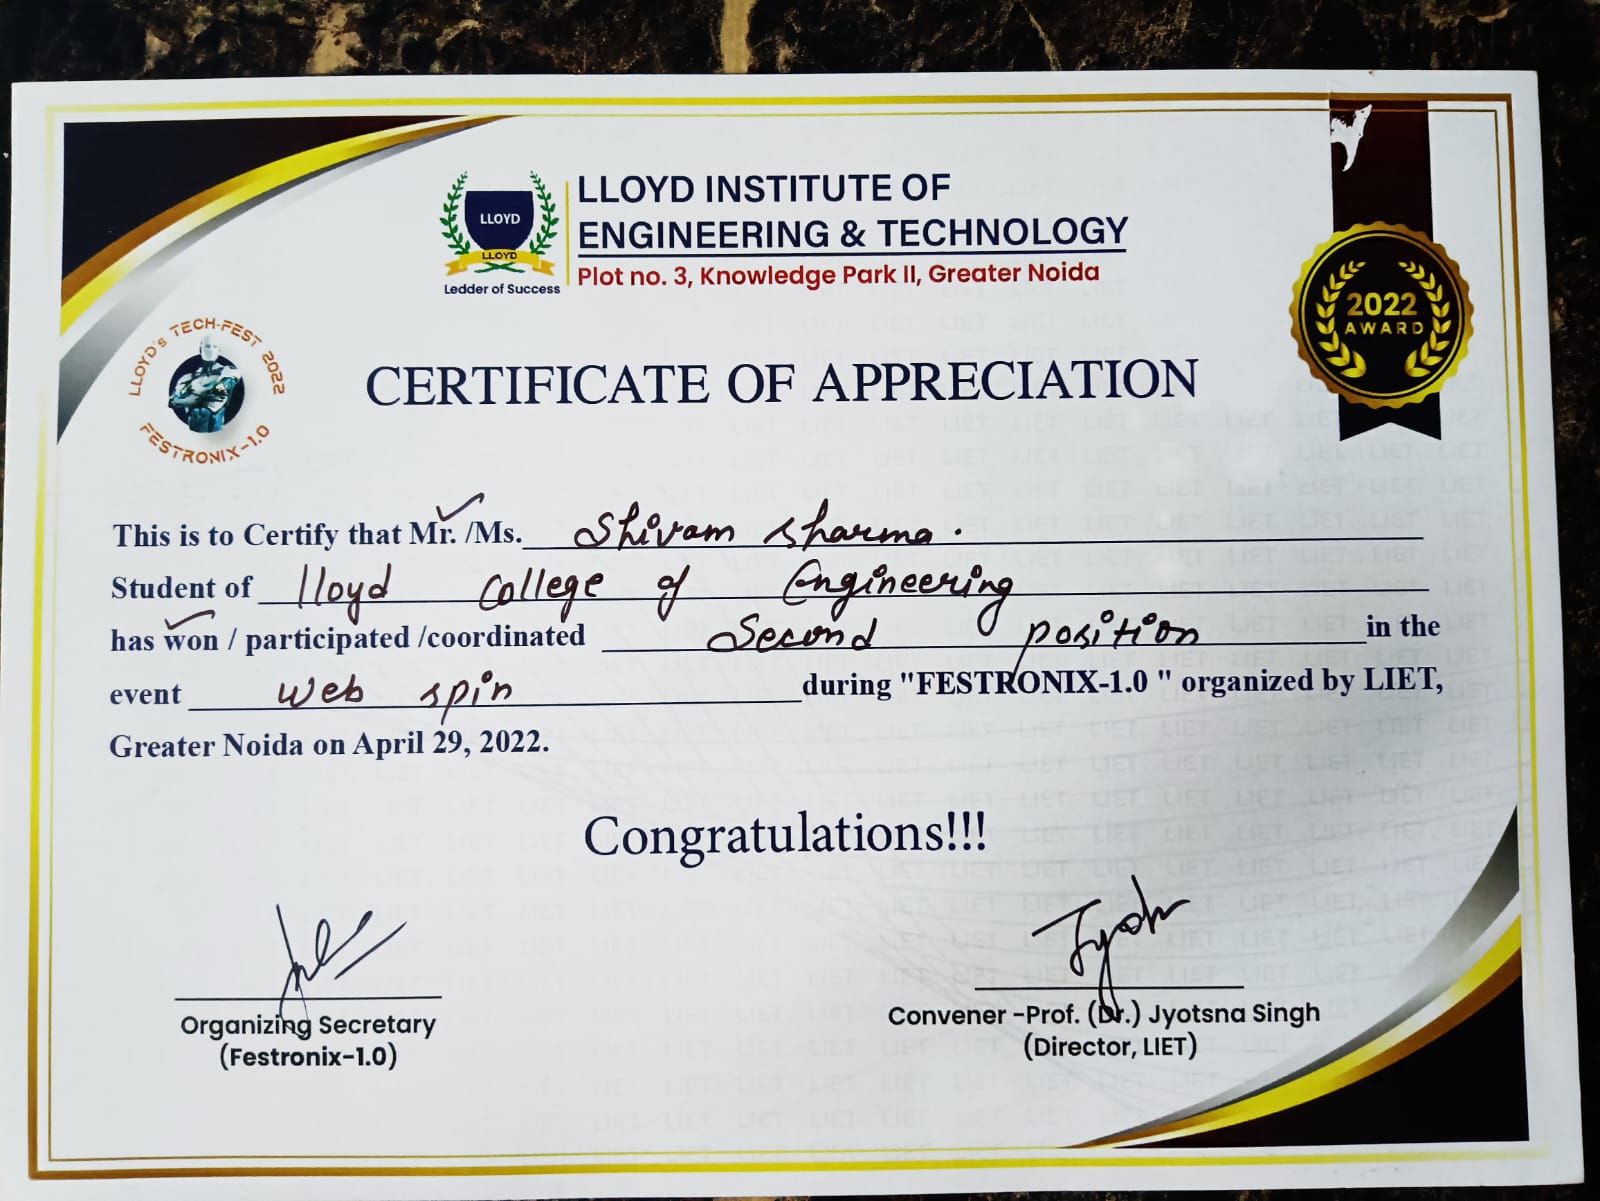 LLOYD
LLOYD
Ledder of Success
LLOYD INSTITUTE OF
ENGINEERING & TECHNOLOGY
Plot no. 3, Knowledge Park II, Greater Noida
2022
AWARD
LLOYD's TECH-FEST 2022
FESTRONIX-1.0
CERTIFICATE OF APPRECIATION
This is to Certify that Mr. /Ms. Shivam Sharma.
Student of lloyd College of Engineering
has won / participated /coordinated Second position in the
event web spin during "FESTRONIX-1.0 " organized by LIET,
Greater Noida on April 29, 2022.
Congratulations!!!
Organizing Secretary
(Festronix-1.0)
Convener -Prof. (Dr.) Jyotsna Singh
(Director, LIET)